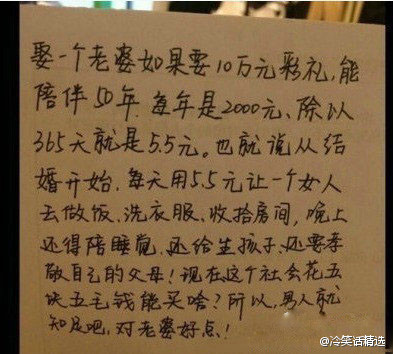 娶一个老婆如果要10万元彩礼,能
陪伴50年.每年是2000元、除以
365天就是5.5元。也就说从结
婚开始,每天用5.5元让一个女人
去做饭、洗衣服、收拾房间,晚上
还得陪睡觉,还给生孩子、还要孝
敬自己的父母!现在这个社会花五
块五毛钱能买啥?所以,男人就
知足吧,对老婆好点!
@冷笑话精选